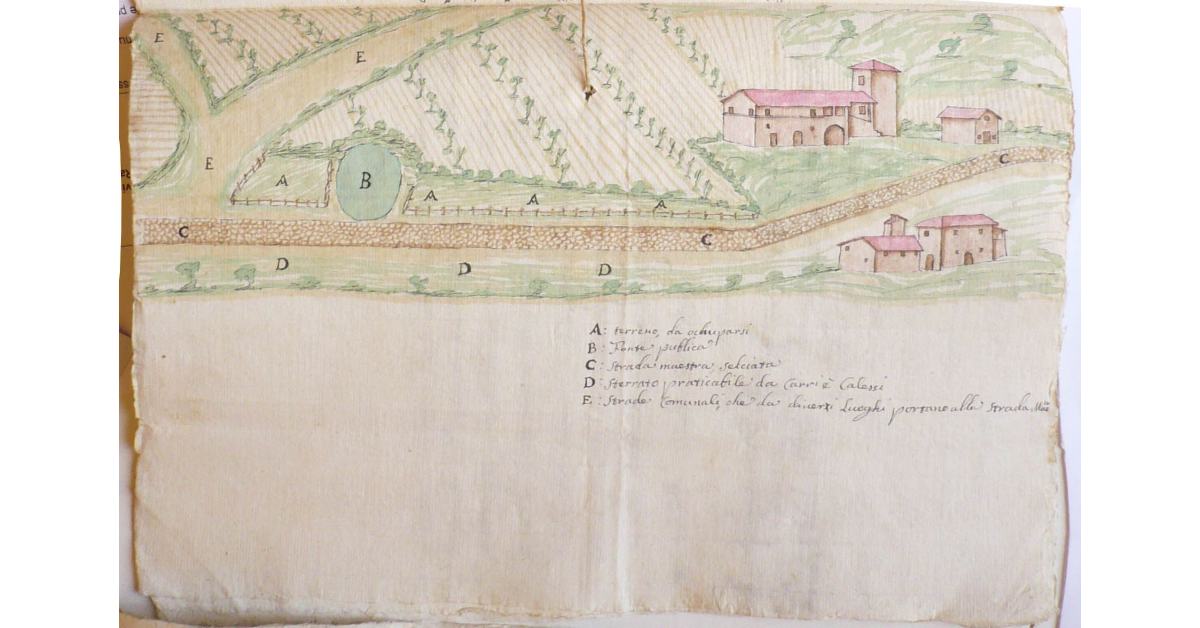 E
E
E
A
B
A
A
A
C
C
C
D
D
D
A: terreno, da ochuparsi
B: Fonte publica
C: Strada maestra, selciata
D: Sterrato praticabile da Carri è Calessi
E: Strade Comunali, che da diversi Lueghi portano alla Strada